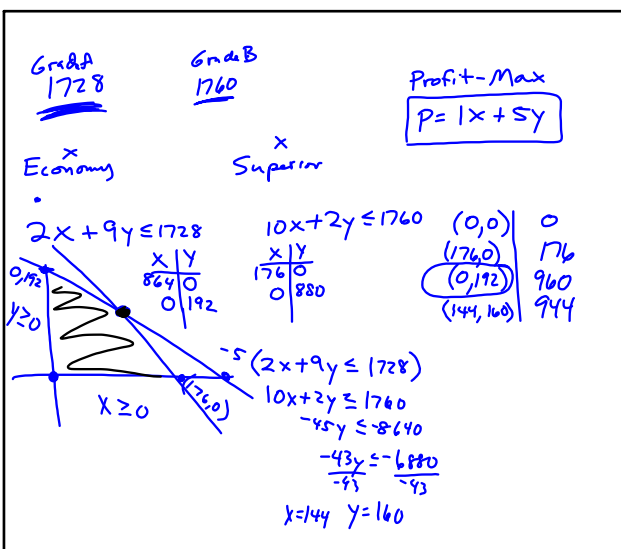 Grade A
1728
Grade B
1760
Profit-Max
P= 1x + 5y
x
Economy
x
Superior
2x + 9y ≤ 1728
x | y
864 | 0
0 | 192
10x + 2y ≤ 1760
x | y
176 | 0
0 | 880
(0,0) | 0
(176,0) | 176
(0,192) | 960
(144,160) | 944
0,192
y≥0
x ≥ 0
(176,0)
-5 (2x+9y ≤ 1728)
10x+2y ≤ 1760
-45y ≤ -8640
-43y ≤ -6880
-43 -43
x=144 y=160